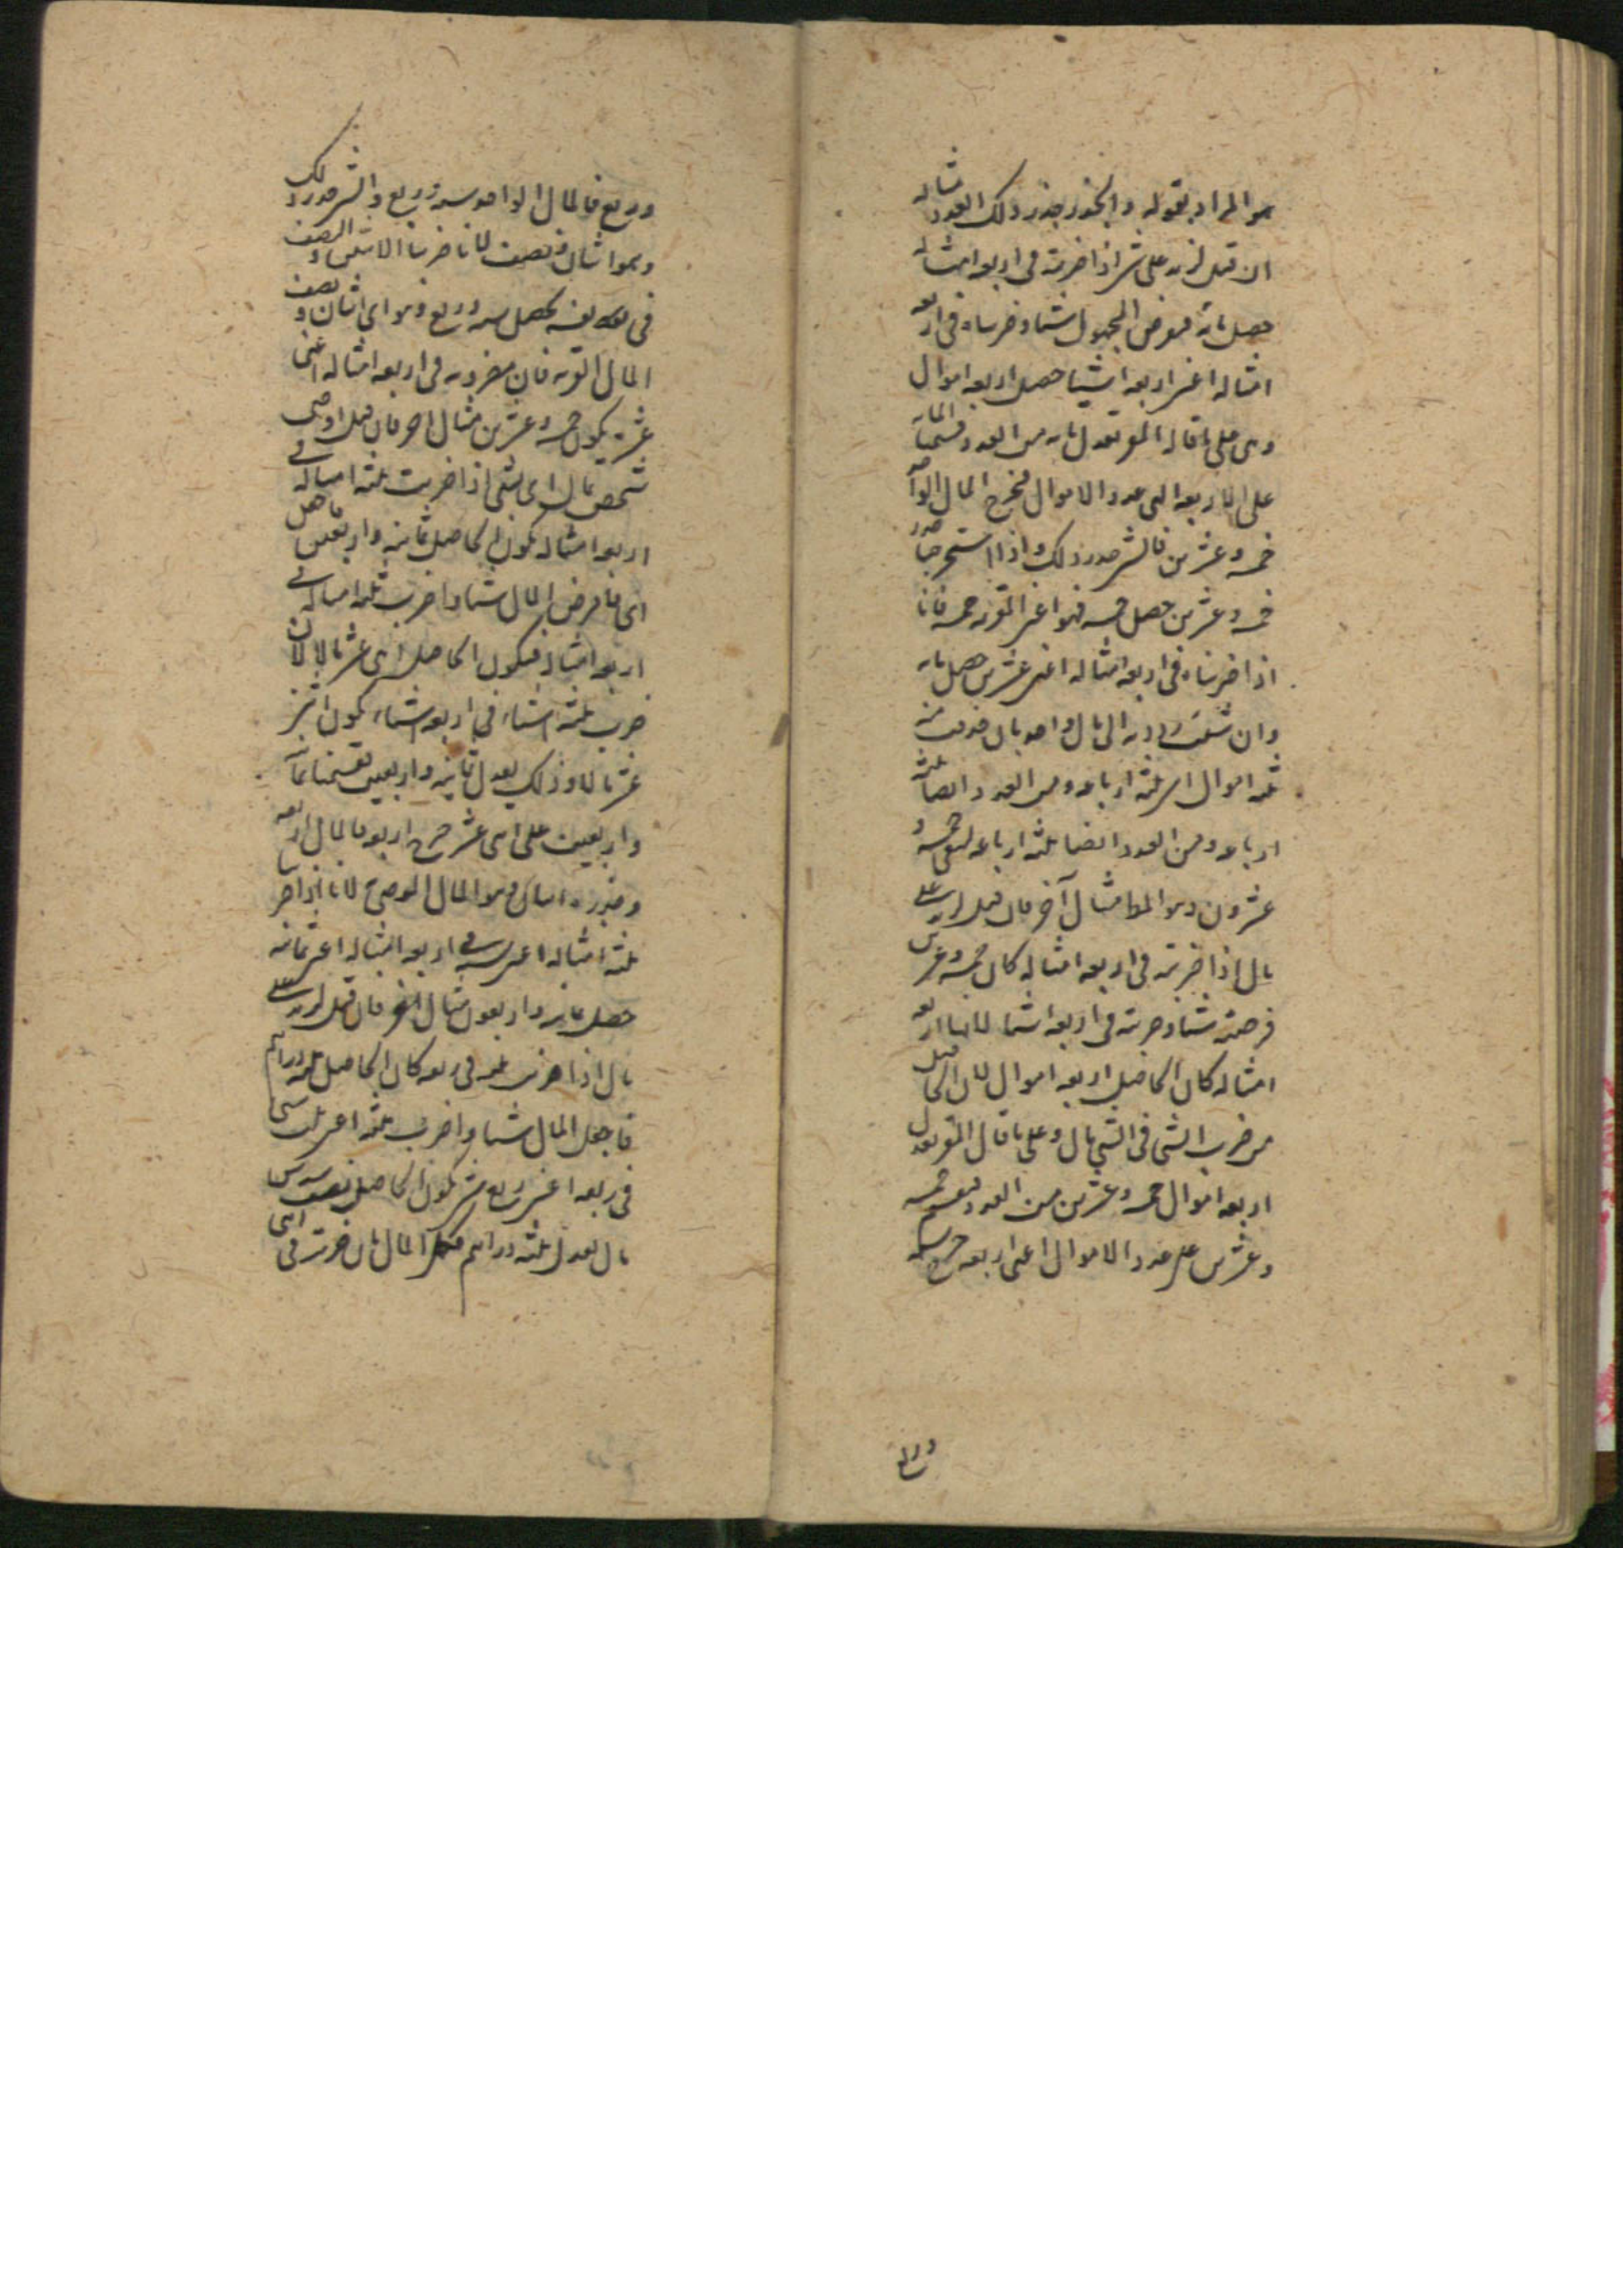 هو المراد بقوله والجذر جذر ذلك العدد مثاله
ان قيل لزيد على شئ اذا ضربته في اربعة امثاله
حصل مائة فنفرض المجهول شيئا وضربناه في اربعة
امثاله اعني اربعة اشيا حصل اربعة اموال
وهي على ما قاله المقر تعدل مائة من العدد وقسمنا المائة
على الاربعة التي عدد الاموال فخرج المال الواحد
خمسة وعشرين فالشئ جذر ذلك واذا استخرجنا جذر
خمسة وعشرين حصل خمسة فهو اعني المقر به خمسة فانا
اذا ضربناه في اربعة امثاله اعني عشرين حصل مائة
وان شئت رده الى مال واحد بان حذفت من
ثلثة اموال اى ثلثة ارباعه ومن العدد ايضا ثلثة
ارباعه ومن العدد ايضا ثلثة ارباعه لبقى خمسة و
عشرون وهو المط مثال آخر فان قيل لزيد على
مال اذا ضربته في اربعة امثاله كان خمسة وعشرين
فرضته شيئا وضربته في اربعة اشيا لانها اربعة
امثاله كان الحاصل اربعة اموال لان الحاصل
من ضرب الشئ في الشئ مال وعلى ما قال المقر تعدل
اربعة اموال خمسة وعشرين من العدد فيقسم خمسة
وعشرين على عدد الاموال اعني اربعة خرج ستة
وربع
وربع فالمال الواحد ستة وربع والشئ جذر ذلك
وهو اثنان ونصف لانا ضربنا الاثنين والنصف
في نفسه يحصل ستة وربع وهو اى اثنان ونصف
المال المقر به فان مضروبه في اربعة امثاله اعني
عشرة يكون خمسة وعشرين مثال اخر فان قيل اوصى
شخص بمال اى شئ اذا ضربت ثلثة امثاله في
اربعة امثاله يكون الحاصل ثمانية واربعين
اى فافرض المال شيئا واضرب ثلثة امثاله في
اربعة امثاله فيكون الحاصل اثنى عشر مالا لان
ضرب ثلثة اشياء في اربعة اشياء يكون اثنى
عشر مالا وذلك يعدل ثمانية واربعين فقسمنا ثمانية
واربعين على اثنى عشر خرج اربعة فالمال اربعة
وجذره اثنان وهو المال الموصى لانا اذا ضربنا
ثلثة امثاله اعني ستة في اربعة امثاله اعني ثمانية
حصل ثمانية واربعون مثال اخر فان قيل لزيد على
مال اذا ضرب ثلثه في ربعه كان الحاصل ثلثة دراهم
فاجعل المال شيئا واضرب ثلثه اعني ثلث شئ
في ربعه اعني ربع شئ يكون الحاصل نصف سدس
مال يعدل ثلثة دراهم فكمل المال بان ضربت في اثنى